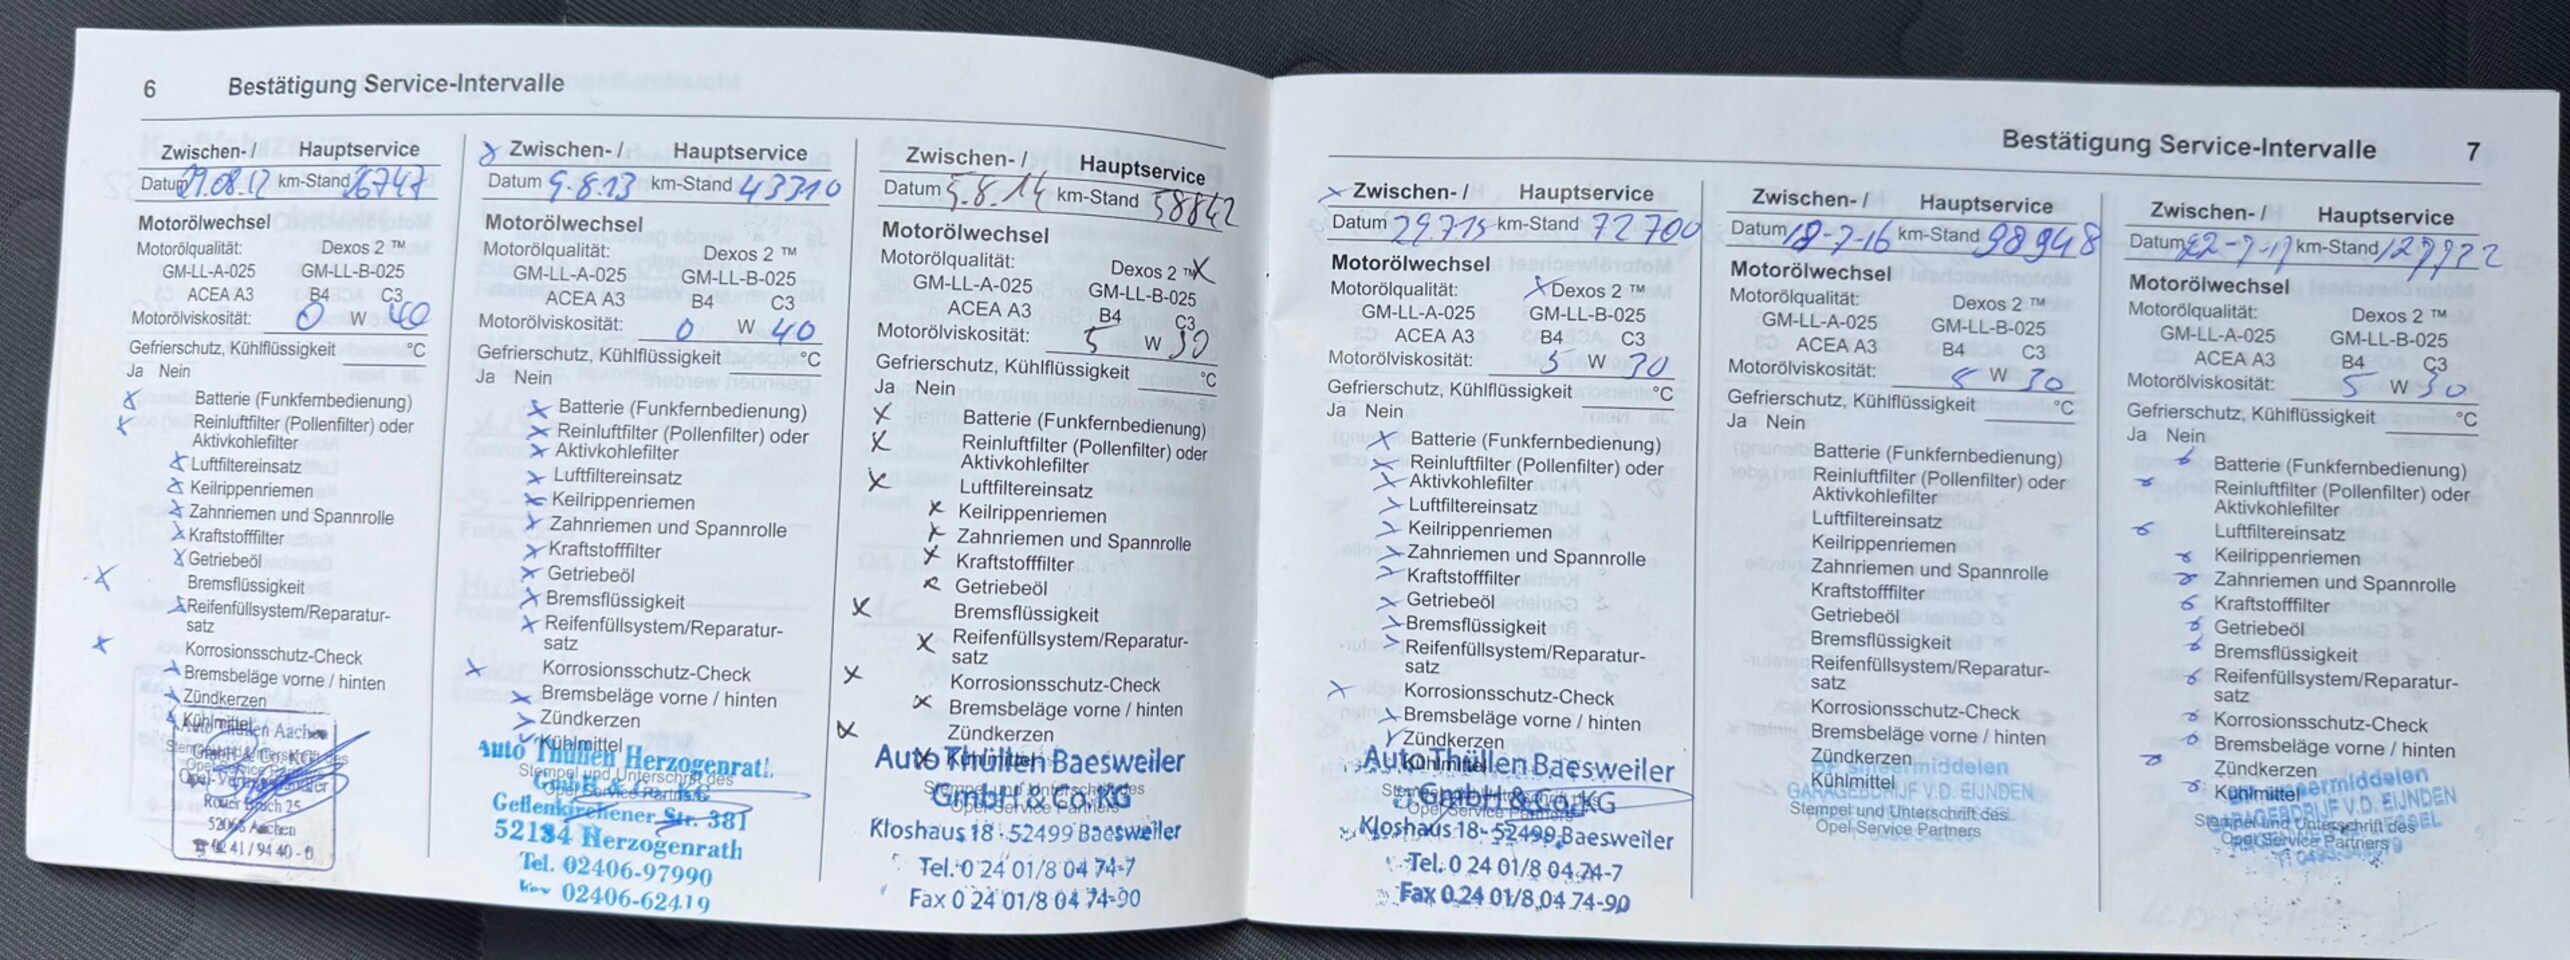 6 Bestätigung Service-Intervalle
Zwischen- / Hauptservice
Datum 29.08.12 km-Stand 26747
Motorölwechsel
Motorölqualität: Dexos 2 ™
GM-LL-A-025 GM-LL-B-025
ACEA A3 B4 C3
Motorölviskosität: 0 W 40
Gefrierschutz, Kühlflüssigkeit °C
Ja Nein
x Batterie (Funkfernbedienung)
x Reinluftfilter (Pollenfilter) oder
Aktivkohlefilter
x Luftfiltereinsatz
x Keilrippenriemen
x Zahnriemen und Spannrolle
x Kraftstofffilter
x Getriebeöl
x Bremsflüssigkeit
x Reifenfüllsystem/Reparatur-
satz
x Korrosionsschutz-Check
x Bremsbeläge vorne / hinten
x Zündkerzen
x Kühlmittel
Auto Thüllen Aachen
GmbH & Co. KG
52068 Aachen
☎ 02 41 / 94 40 - 0
x Zwischen- / Hauptservice
Datum 9.8.13 km-Stand 43310
Motorölwechsel
Motorölqualität: Dexos 2 ™
GM-LL-A-025 GM-LL-B-025
ACEA A3 B4 C3
Motorölviskosität: 0 W 40
Gefrierschutz, Kühlflüssigkeit °C
Ja Nein
x Batterie (Funkfernbedienung)
x Reinluftfilter (Pollenfilter) oder
x Aktivkohlefilter
x Luftfiltereinsatz
x Keilrippenriemen
x Zahnriemen und Spannrolle
x Kraftstofffilter
x Getriebeöl
x Bremsflüssigkeit
x Reifenfüllsystem/Reparatur-
satz
x Korrosionsschutz-Check
x Bremsbeläge vorne / hinten
x Zündkerzen
x Kühlmittel
Auto Thüllen Herzogenrath
Stempel und Unterschrift des
GmbH & Co. KG
Opel Service Partners
Geilenkirchener Str. 381
52134 Herzogenrath
Tel. 02406-97990
02406-62419
Zwischen- / Hauptservice
Datum 5.8.14 km-Stand 58842
Motorölwechsel
Motorölqualität: Dexos 2 ™ x
GM-LL-A-025 GM-LL-B-025
ACEA A3 B4 C3
Motorölviskosität: 5 W 30
Gefrierschutz, Kühlflüssigkeit °C
Ja Nein
x Batterie (Funkfernbedienung)
x Reinluftfilter (Pollenfilter) oder
Aktivkohlefilter
x Luftfiltereinsatz
x Keilrippenriemen
x Zahnriemen und Spannrolle
x Kraftstofffilter
x Getriebeöl
x Bremsflüssigkeit
x Reifenfüllsystem/Reparatur-
satz
x Korrosionsschutz-Check
x Bremsbeläge vorne / hinten
x Zündkerzen
x Kühlmittel
Auto Thüllen Baesweiler
Stempel und Unterschrift des
GmbH & Co. KG
Opel Service Partners
Kloshaus 18 · 52499 Baesweiler
Tel. 0 24 01/8 04 74-7
Fax 0 24 01/8 04 74-90
Bestätigung Service-Intervalle 7
x Zwischen- / Hauptservice
Datum 29.7.15 km-Stand 72700
Motorölwechsel
Motorölqualität: x Dexos 2 ™
GM-LL-A-025 GM-LL-B-025
ACEA A3 B4 C3
Motorölviskosität: 5 W 30
Gefrierschutz, Kühlflüssigkeit °C
Ja Nein
x Batterie (Funkfernbedienung)
x Reinluftfilter (Pollenfilter) oder
x Aktivkohlefilter
x Luftfiltereinsatz
x Keilrippenriemen
x Zahnriemen und Spannrolle
x Kraftstofffilter
x Getriebeöl
x Bremsflüssigkeit
x Reifenfüllsystem/Reparatur-
satz
x Korrosionsschutz-Check
x Bremsbeläge vorne / hinten
x Zündkerzen
Kühlmittel
Auto Thüllen Baesweiler
GmbH & Co. KG
Opel Service Partners
Kloshaus 18 · 52499 Baesweiler
Tel. 0 24 01/8 04 74-7
Fax 0 24 01/8 04 74-90
Zwischen- / Hauptservice
Datum 18-7-16 km-Stand 98948
Motorölwechsel
Motorölqualität: Dexos 2 ™
GM-LL-A-025 GM-LL-B-025
ACEA A3 B4 C3
Motorölviskosität: 5 W 30
Gefrierschutz, Kühlflüssigkeit °C
Ja Nein
Batterie (Funkfernbedienung)
Reinluftfilter (Pollenfilter) oder
Aktivkohlefilter
Luftfiltereinsatz
Keilrippenriemen
Zahnriemen und Spannrolle
Kraftstofffilter
Getriebeöl
Bremsflüssigkeit
Reifenfüllsystem/Reparatur-
satz
Korrosionsschutz-Check
Bremsbeläge vorne / hinten
Zündkerzen
smeermiddelen
Kühlmittel
GARAGEBEDRIJF V.D. EIJNDEN
Stempel und Unterschrift des
Opel Service Partners
Zwischen- / Hauptservice
Datum km-Stand
Motorölwechsel
Motorölqualität: Dexos 2 ™
GM-LL-A-025 GM-LL-B-025
ACEA A3 B4 C3
Motorölviskosität: 5 W 30
Gefrierschutz, Kühlflüssigkeit °C
Ja Nein
x Batterie (Funkfernbedienung)
x Reinluftfilter (Pollenfilter) oder
Aktivkohlefilter
x Luftfiltereinsatz
x Keilrippenriemen
x Zahnriemen und Spannrolle
x Kraftstofffilter
x Getriebeöl
x Bremsflüssigkeit
x Reifenfüllsystem/Reparatur-
satz
x Korrosionsschutz-Check
x Bremsbeläge vorne / hinten
x Zündkerzen
x Kühlmittel
smeermiddelen
GARAGEBEDRIJF V.D. EIJNDEN
Stempel und Unterschrift des
Opel Service Partners